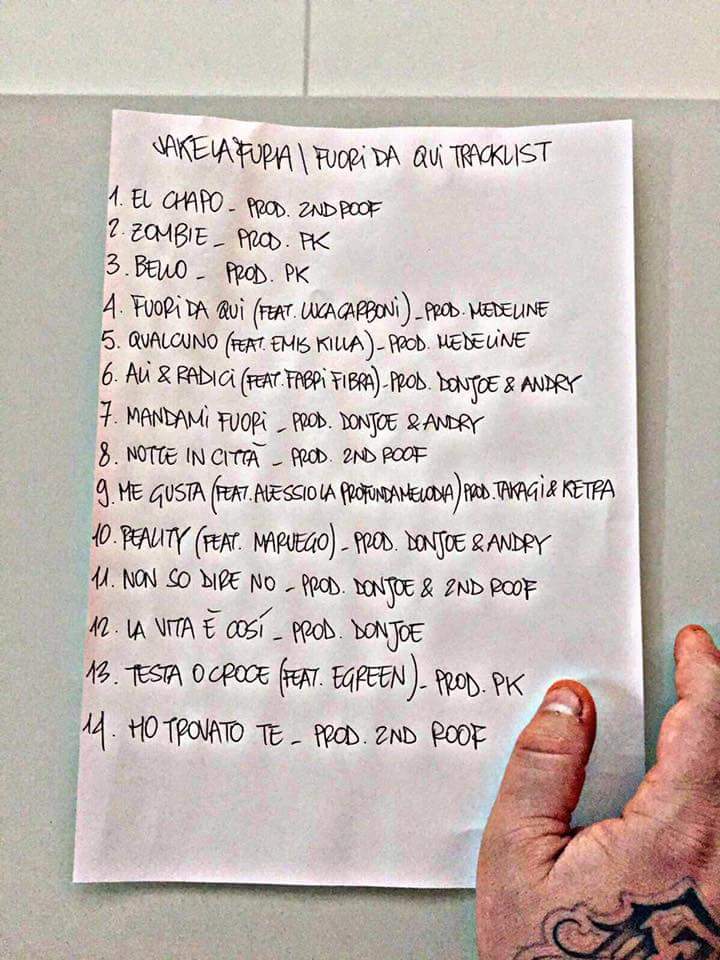 JAKE LA FURIA | FUORI DA QUI TRACKLIST
1. EL CHAPO - PROD. 2ND ROOF
2. ZOMBIE - PROD. PK
3. BELLO - PROD. PK
4. FUORI DA QUI (FEAT. LUCA CARBONI) - PROD. MEDELINE
5. QUALCUNO (FEAT. EMIS KILLA) - PROD. MEDELINE
6. ALI & RADICI (FEAT. FABRI FIBRA) - PROD. DONJOE & ANDRY
7. MANDAMI FUORI - PROD. DONJOE & ANDRY
8. NOTTE IN CITTÀ - PROD. 2ND ROOF
9. ME GUSTA (FEAT. ALESSIO LA PROFUNDA MELODIA) PROD. TAKAGI & KETRA
10. REALITY (FEAT. MARUEGO) - PROD. DONJOE & ANDRY
11. NON SO DIRE NO - PROD. DONJOE & 2ND ROOF
12. LA VITA È COSÍ - PROD. DONJOE
13. TESTA O CROCE (FEAT. EGREEN) - PROD. PK
14. HO TROVATO TE - PROD. 2ND ROOF